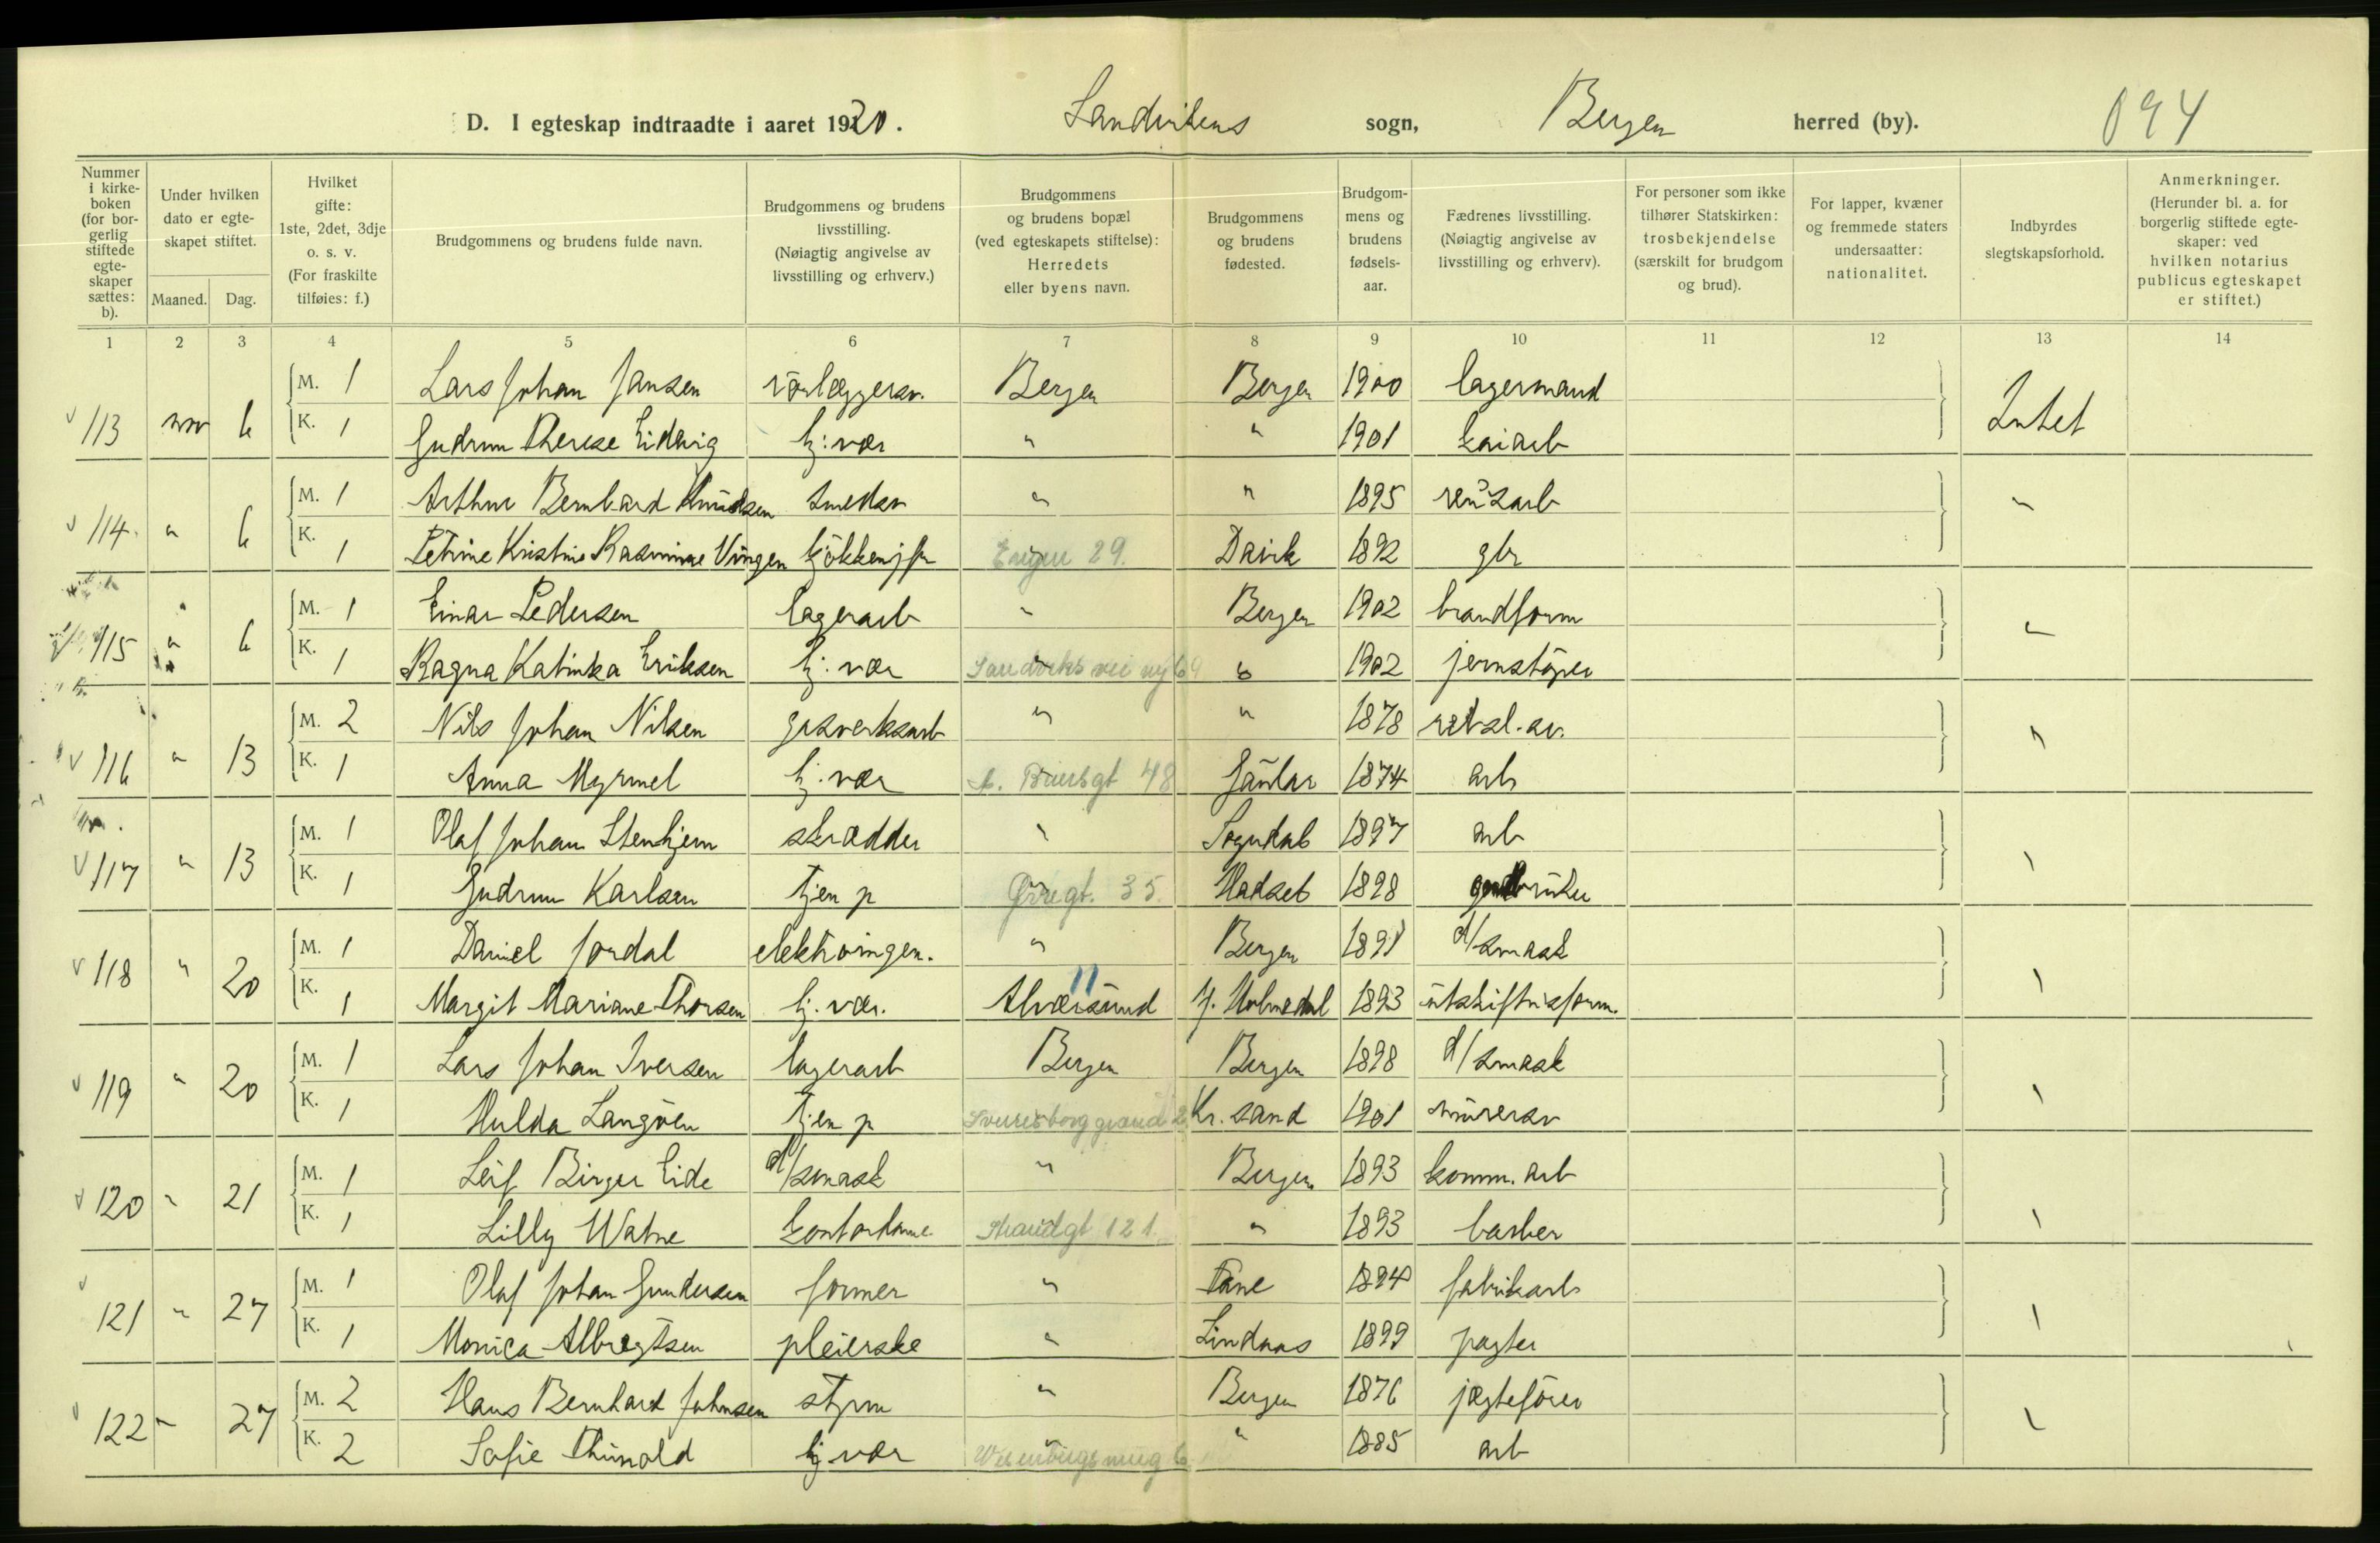 D. I egteskap indtraadte i aaret 1920. Sandvikens sogn, Bergen herred (by). 094
Nummer i kirke- boken (for bor- gerlig stiftede egte- skaper sættes: b).
Under hvilken dato er egte- skapet stiftet.
Maaned. Dag.
Hvilket gifte: 1ste, 2det, 3dje o. s. v. (For fraskilte tilføies: f.)
Brudgommens og brudens fulde navn.
Brudgommens og brudens livsstilling. (Nøiagtig angivelse av livsstilling og erhverv.)
Brudgommens og brudens bopæl (ved egteskapets stiftelse): Herredets eller byens navn.
Brudgommens og brudens fødested.
Brudgom- mens og brudens fødsels- aar.
Fædrenes livsstilling. (Nøiagtig angivelse av livsstilling og erhverv).
For personer som ikke tilhører Statskirken: trosbekjendelse (særskilt for brudgom og brud).
For lapper, kvæner og fremmede staters undersaatter: nationalitet.
Indbyrdes slegtskapsforhold.
Anmerkninger. (Herunder bl. a. for borgerlig stiftede egte- skaper: ved hvilken notarius publicus egteskapet er stiftet.)
1 2 3 4 5 6 7 8 9 10 11 12 13 14
M. 1 Lars Johan Jansen rörlæggersv. Bergen Bergen 1900 lagermand
113 nov 6 Intet
K. 1 Gudrun Therese Eidsvig hj: vær " " 1901 kaiarb
M. 1 Arthur Bernhard Knudsen smedsv " " 1895 renh.arb
114 " 6 "
K. 1 Petrine Kristine Rasmine Vingen kjökkenjfr Engen 29. Davik 1892 gbr
M. 1 Einar Pedersen lagerarb " Bergen 1902 brandform
115 " 6 "
K. 1 Ragna Katinka Eriksen hj: vær Sandviksvei ny 69 " 1902 jernstöper
M. 2 Nils Johan Nilsen gasverksarb " " 1878 rebsl.sv.
116 " 13 "
K. 1 Anna Myrmel hj: vær A. Bruunsgt 48 Gaular 1874 arb
M. 1 Olaf Johan Stenhjem skrædder " Sogndal 1897 arb
117 " 13 "
K. 1 Gudrun Karlsen tjen p Øvregt. 35. Hadsel 1898 gaardbruker
M. 1 Daniel Jordal elektroingen. " Bergen 1891 d/smask
118 " 20 "
K. 1 Margit Mariane Thorsen hj. vær. Alversund Y. Holmedal 1893 utskiftnisform.
M. 1 Lars Johan Iversen lagerarb Bergen Bergen 1898 d/smask
119 " 20 "
K. 1 Hulda Langöen tjen p Sverresborg grænd 2 Kr. sand 1901 murersv
M. 1 Leif Birger Eide d/smask " Bergen 1893 komm. arb
120 " 21 "
K. 1 Lilly Watne kontordame Strandgt 121. " 1893 barber
M. 1 Olaf Johan Gundersen former " Fane 1894 fabrikarb
121 " 27 "
K. 1 Monica Albregtsen pleierske " Lindaas 1899 pagter
M. 2 Hans Bernhard Johnsen styrm " Bergen 1876 jægtefører
122 " 27 "
K. 2 Sofie Thunold hj vær Wesenbergsmug 6 " 1885 arb